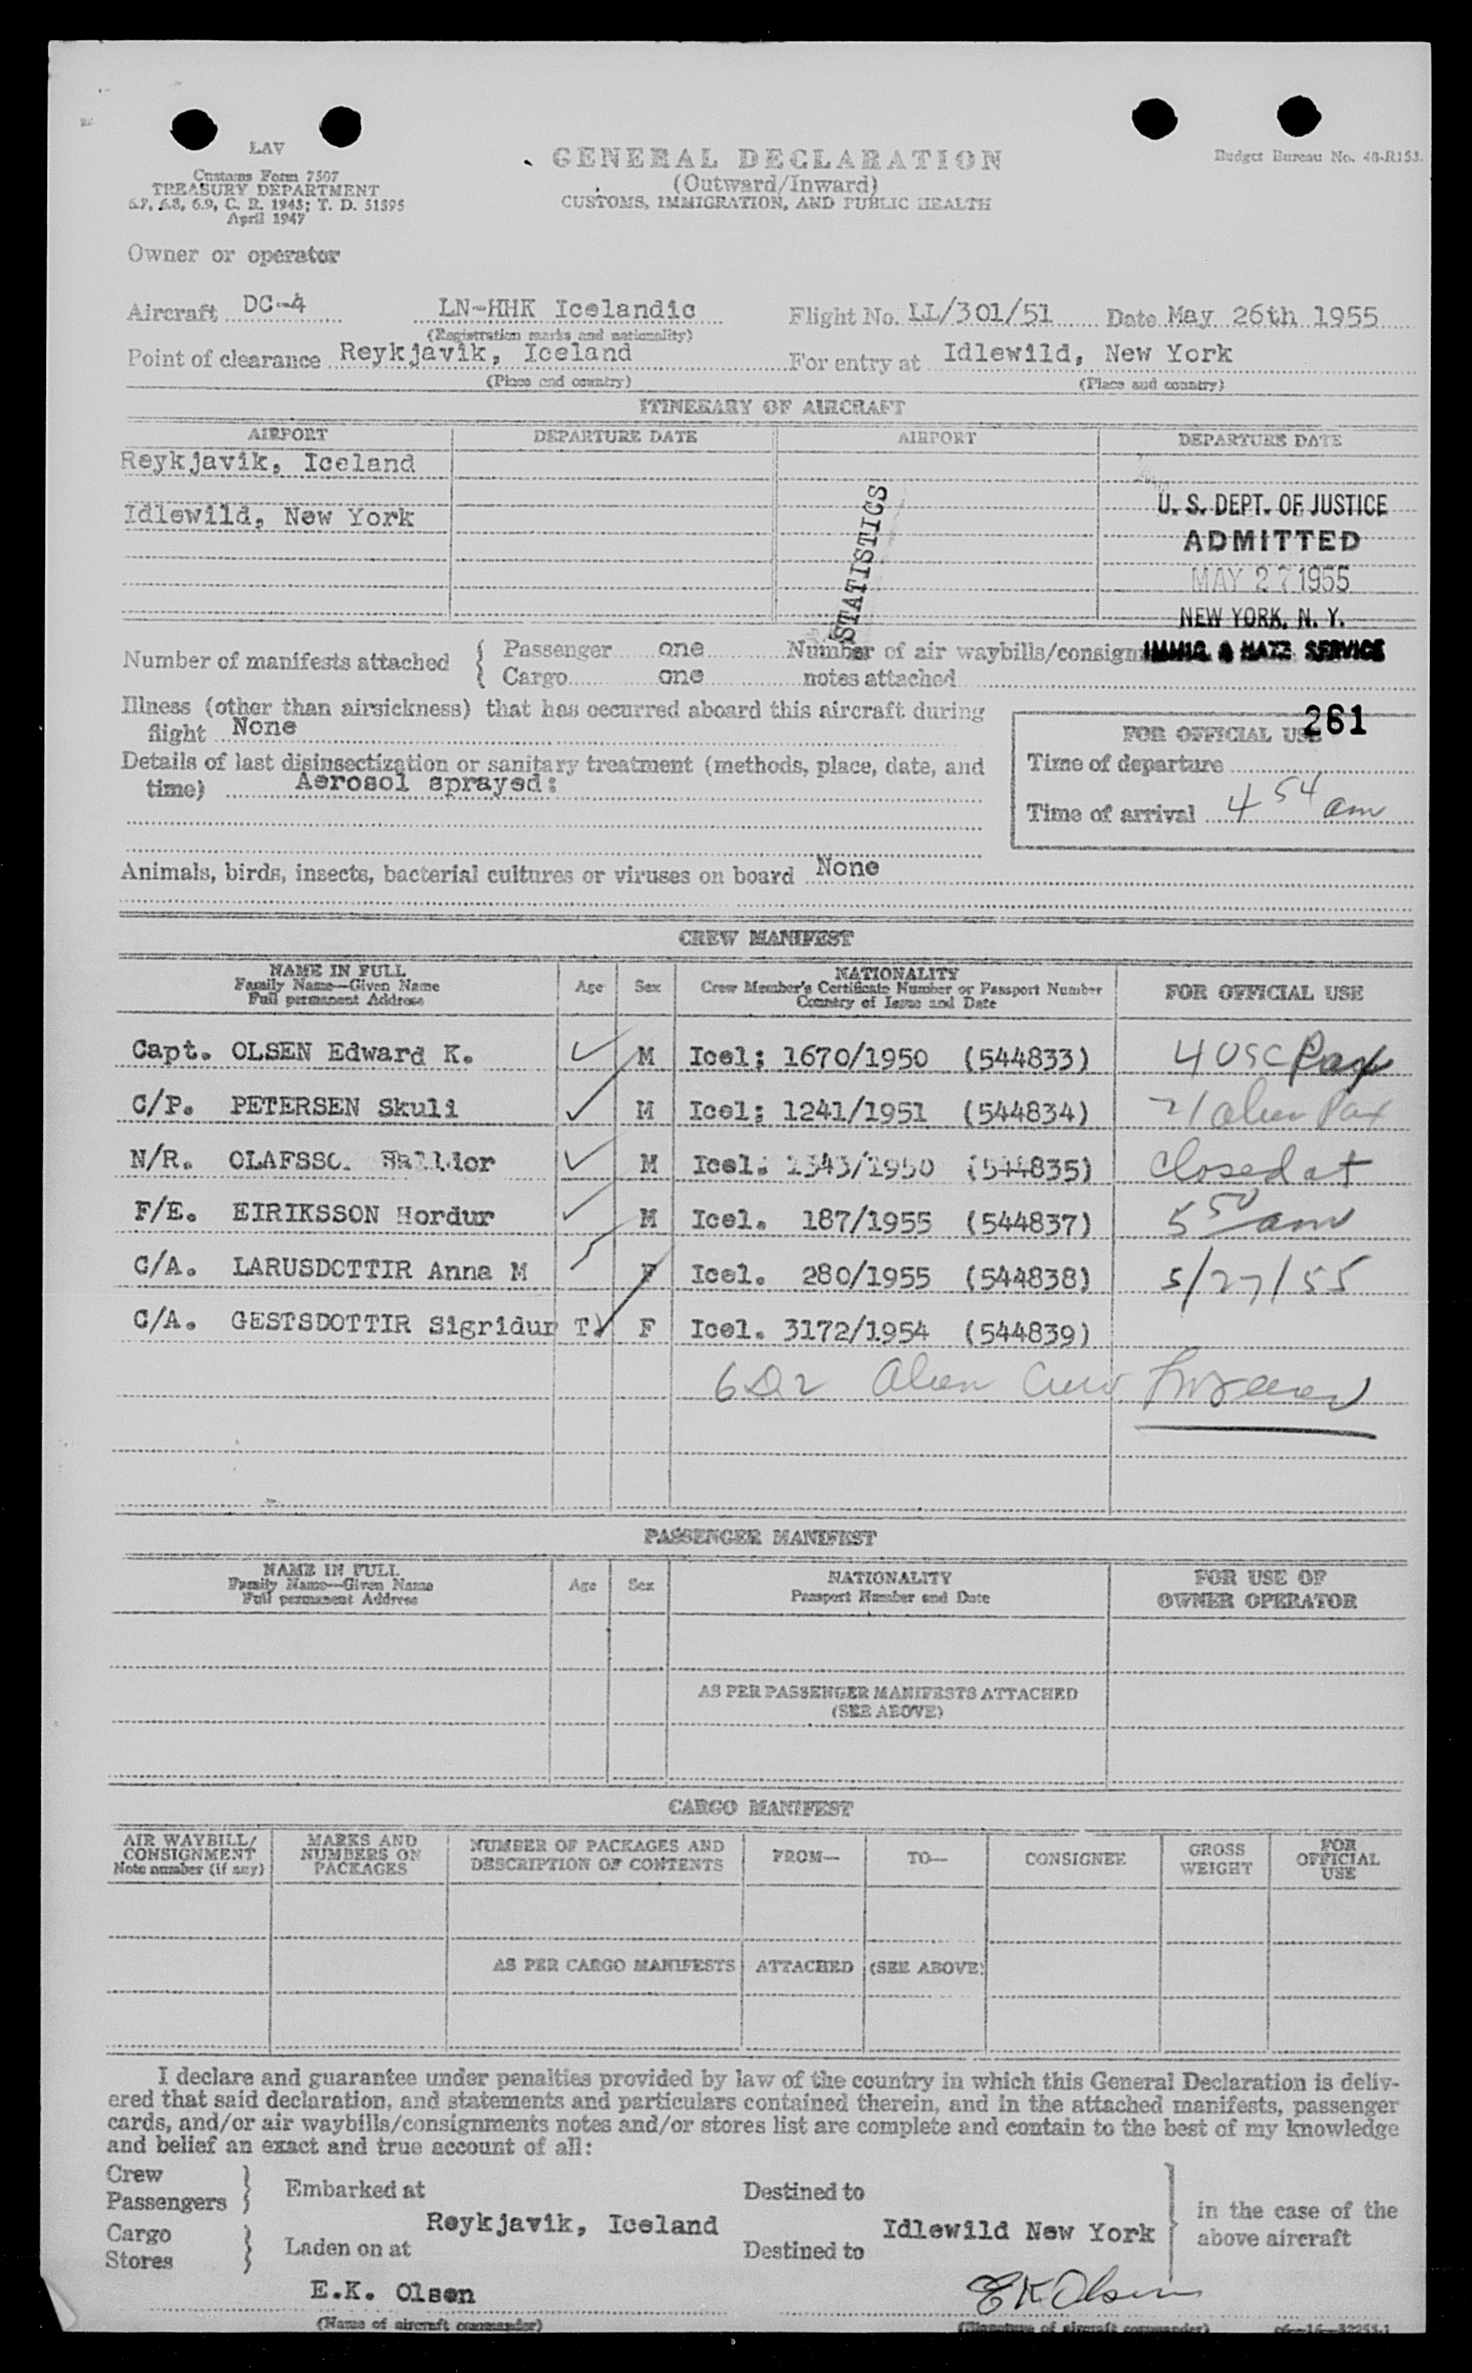 LAV
Customs Form 7507
TREASURY DEPARTMENT
6.7, 6.8, 6.9, C. R. 1943; T. D. 51395
April 1947
GENERAL DECLARATION
(Outward/Inward)
CUSTOMS, IMMIGRATION, AND PUBLIC HEALTH
Budget Bureau No. 48-R153.
Owner or operator
Aircraft DC-4 LN-HHK Icelandic Flight No. LL/301/51 Date May 26th 1955
(Registration marks and nationality)
Point of clearance Reykjavik, Iceland For entry at Idlewild, New York
(Place and country) (Place and country)
ITINERARY OF AIRCRAFT
AIRPORT DEPARTURE DATE AIRPORT DEPARTURE DATE
Reykjavik, Iceland
Idlewild, New York
STATISTICS
U. S. DEPT. OF JUSTICE
ADMITTED
MAY 27 1955
NEW YORK, N. Y.
IMMIG. & NATZ SERVICE
Number of manifests attached { Passenger one Number of air waybills/consign
Cargo one notes attached
Illness (other than airsickness) that has occurred aboard this aircraft during
flight None
261
FOR OFFICIAL USE
Details of last disinsectization or sanitary treatment (methods, place, date, and
time) Aerosol sprayed:
Time of departure
Time of arrival 4 54 am
Animals, birds, insects, bacterial cultures or viruses on board None
CREW MANIFEST
NAME IN FULL
Family Name—Given Name
Full permanent Address
Age
Sex
NATIONALITY
Crew Member's Certificate Number or Passport Number
Country of Issue and Date
FOR OFFICIAL USE
Capt. OLSEN Edward K. M Icel; 1670/1950 (544833) 4 USC Pax
C/P. PETERSEN Skuli M Icel; 1241/1951 (544834) 21 alien Pax
N/R. Halldor M Icel. 1343/1950 (544835) Closed at
F/E. EIRIKSSON Hordur M Icel. 187/1955 (544837) 5 50 am
C/A. LARUSDOTTIR Anna M F Icel. 280/1955 (544838) 5/27/55
C/A. GESTSDOTTIR Sigridur T. F Icel. 3172/1954 (544839)
6 D2 alien Crew
PASSENGER MANIFEST
NAME IN FULL
Family Name—Given Name
Full permanent Address
Age
Sex
NATIONALITY
Passport Number and Date
FOR USE OF
OWNER OPERATOR
AS PER PASSENGER MANIFESTS ATTACHED
(SEE ABOVE)
CARGO MANIFEST
AIR WAYBILL/
CONSIGNMENT
Note number (if any)
MARKS AND
NUMBERS ON
PACKAGES
NUMBER OF PACKAGES AND
DESCRIPTION OF CONTENTS
FROM—
TO—
CONSIGNEE
GROSS
WEIGHT
FOR
OFFICIAL
USE
AS PER CARGO MANIFESTS ATTACHED (SEE ABOVE)
I declare and guarantee under penalties provided by law of the country in which this General Declaration is deliv-
ered that said declaration, and statements and particulars contained therein, and in the attached manifests, passenger
cards, and/or air waybills/consignments notes and/or stores list are complete and contain to the best of my knowledge
and belief an exact and true account of all:
Crew
Passengers } Embarked at Destined to
Reykjavik, Iceland Idlewild New York
in the case of the
above aircraft
Cargo
Stores } Laden on at Destined to
E.K. Olsen EKOlsen
(Name of aircraft commander) (Signature of aircraft commander)